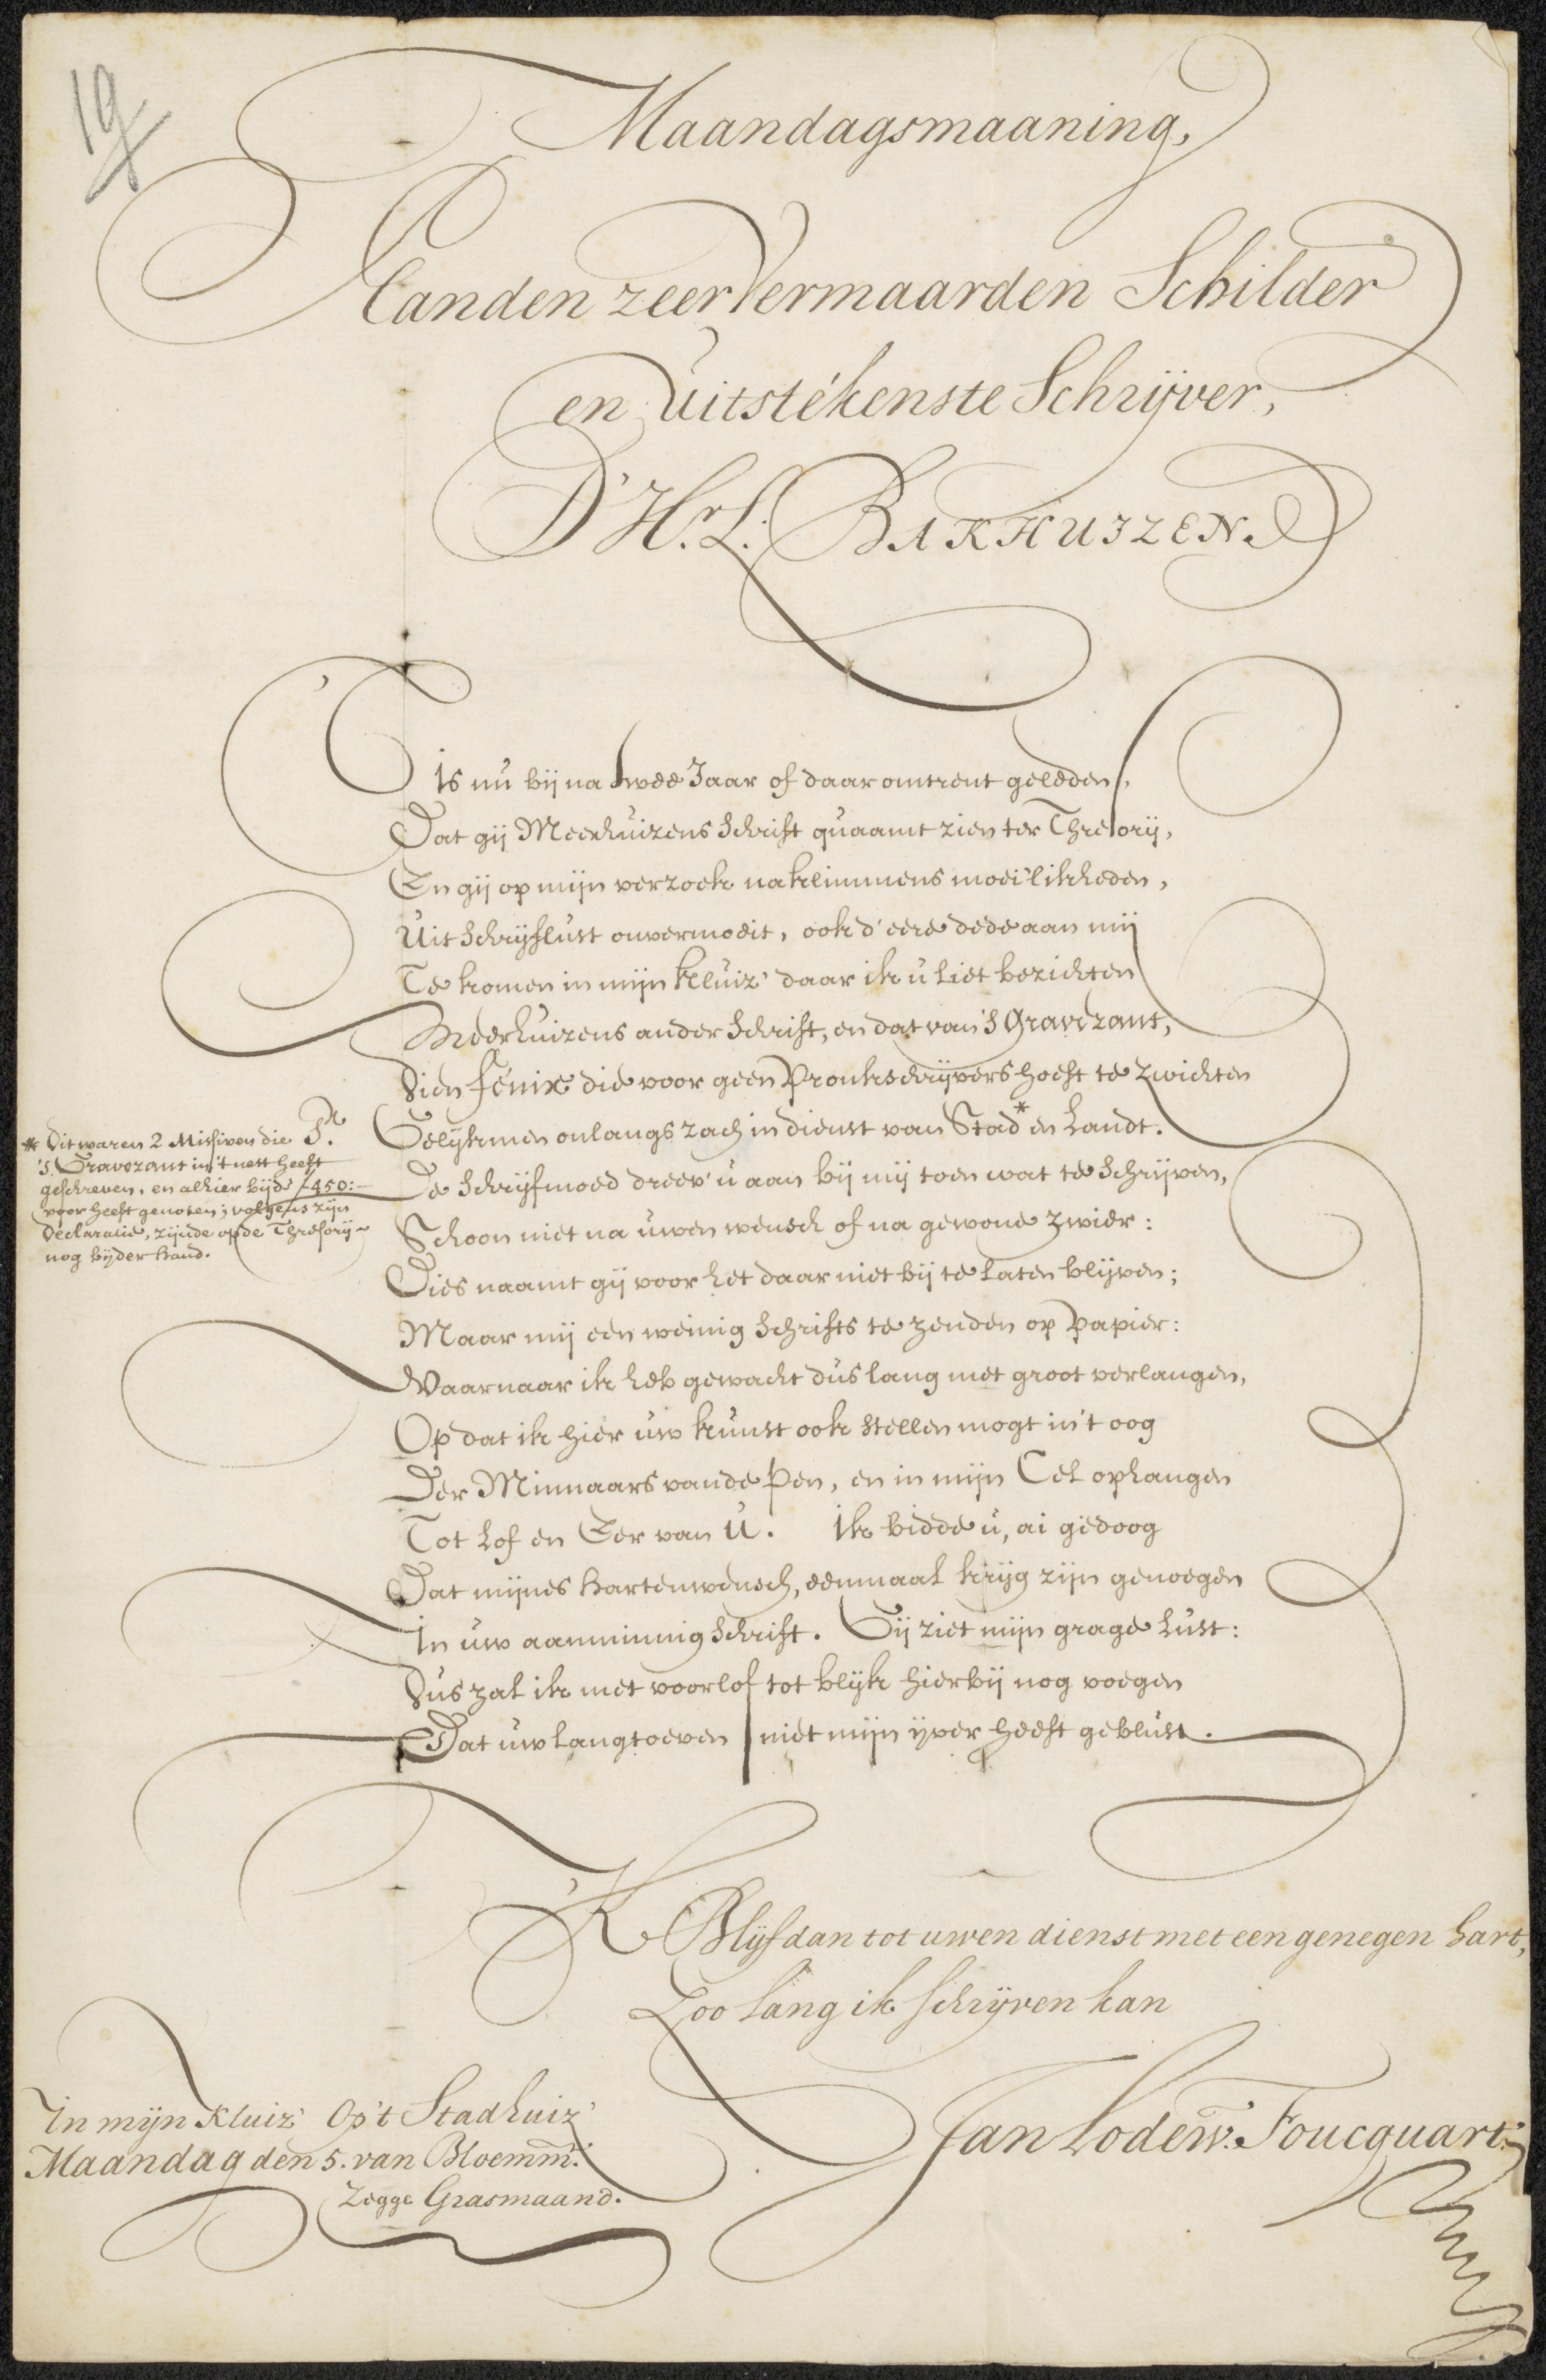 19
Maandagsmaaning,
Aanden zeer Vermaarden Schilder
en Uitstékenste Schrijver,
D'Hr. L. BAKHUIZEN.
'T is nu bij na twee Jaar of daar omtrent geleden,
Dat gij Meerhuizens Schrift quaamt zien ter Thresorij,
En gij op mijn verzoek na klimmens moei'likheden,
Uit Schrijflust onvermoeit, ook d'eere dede aan mij
Te komen in mijn kluiz' daar ik u liet bezichten
Meerhuizens ander Schrift, en dat van 's Gravezant,
Dien Fénix die voor geen Pronkschrijvers hoeft te zwichten
Gelijk men onlangs zach in dienst van Stad* en Landt.
De Schrijfmoed dreev' u aan bij mij toen wat te Schrijven,
Schoon niet na uwen wensch of na gewone zwier:
Dies naamt gij voor het daar niet bij te laten blijven;
Maar mij een weinig Schrifts te zenden op Papier:
Waarnaar ik heb gewacht dus lang met groot verlangen,
Op dat ik hier uw kunst ook stellen mogt in't oog
Der Minnaars vande Pen, en in mijn Cel ophangen
Tot Lof en Eer van U. Ik bidde u, ai gedoog
Dat mijnes hartenwensch, eenmaal krijg zijn genoegen
In uw aanminnig Schrift. Gij ziet mijn grage Lust:
Dus zal ik met voorlof tot blijk hierbij nog voegen
Dat uw lang toeven niet mijn ijver heeft geblust.
* Dit waren 2 Missiven die Sr.
's Gravezant in't nett heeft
geschreven, en alhier bijde f 450:-
voor heeft genoten; volgens zijn
declaratie, zijnde op de Thresorij
nog bijder hand.
'K Blijf dan tot uwen dienst met een genegen hart,
Zoo lang ik Schrijven kan
Jan Lodew. Foucquart.
In mijn Kluiz' Op't Stadhuiz'
Maandag den 5. van Bloemm:
Zegge Grasmaand.